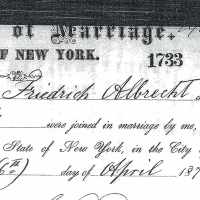 of Marriage.
OF NEW YORK.
1733
Friedrich Albrecht
were joined in marriage by me,
State of New York, in the City
6th day of April 187